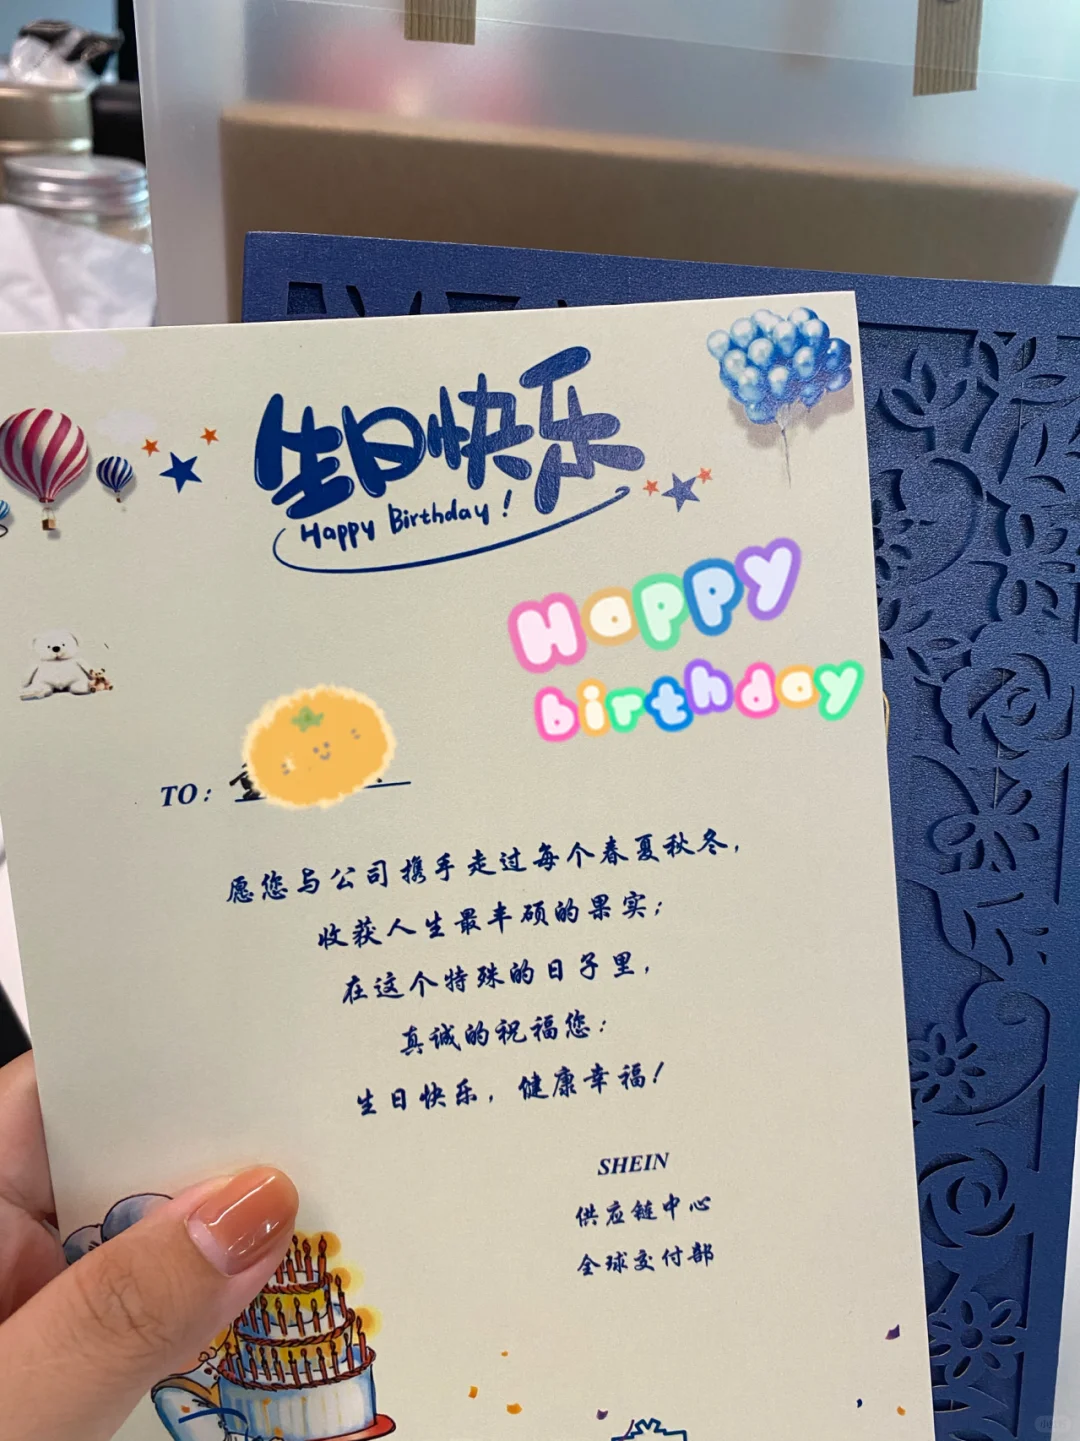 生日快乐
Happy Birthday!
Happy
birthday
TO:
愿您与公司携手走过每个春夏秋冬,
收获人生最丰硕的果实;
在这个特殊的日子里,
真诚的祝福您:
生日快乐,健康幸福!
SHEIN
供应链中心
全球交付部